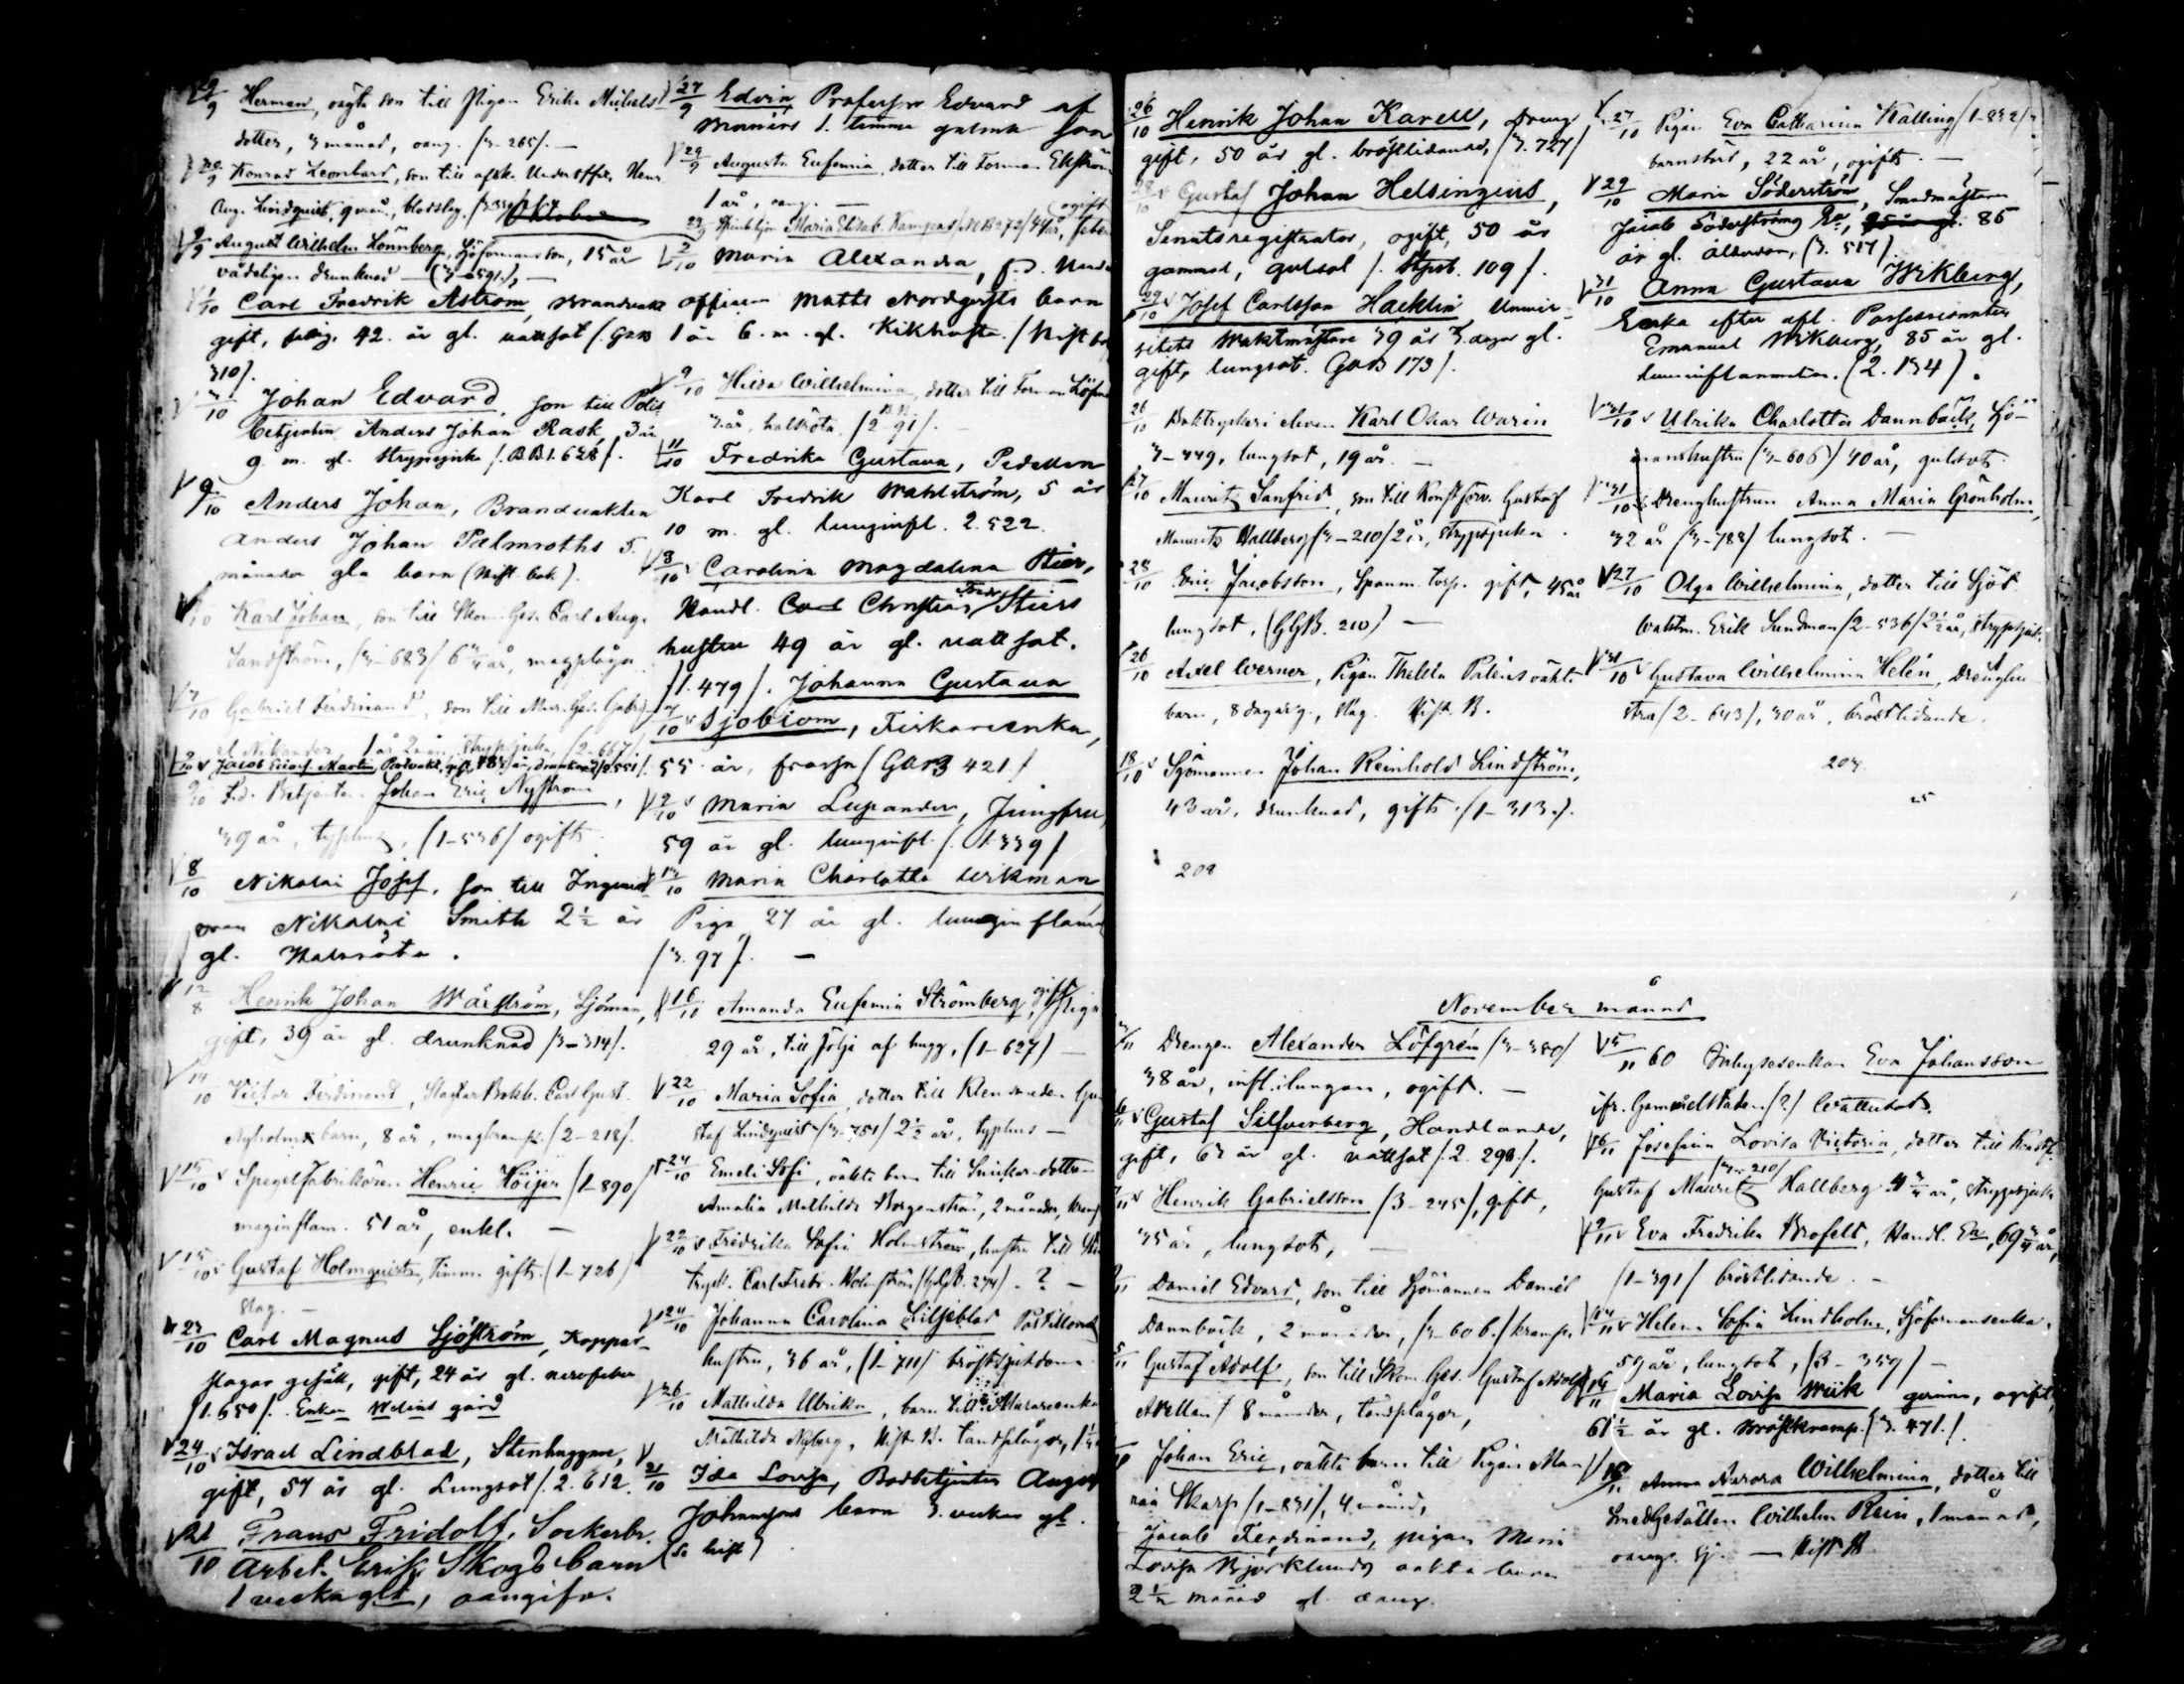 9 Herman, oägta son till Pigan Erika Michels
dotter, 3 månad, oang. (3-265). —
Konrad Leonhard, son till afsk. Underoffic. Henr.
Aug. Lindquist, 9 mån., blodslag.
August Wilhelm Lönnberg, Sjöformansson, 15 år
vådeligen drunknad —
1/10 Carl Fredrik Åström, Brandvakt
gift, 42 år gl. vattsot (GBB
310).
10 Johan Edvard, son till Polis
betjenten Anders Johan Rask, 3 år
9 m. gl. strypsjuka (BB1.628).
9/10 Anders Johan, Brandvakten
Anders Johan Palmroths 5
månader gla barn (Kift. bok).
10 Karl Johan, son till Skom. Ges. Carl Aug.
Sandström, (3-683) 6 3/4 år, magplåga
7/10 Gabriel Ferdinand, son till Mur. Ges. Gabri
el Nikander, strypsjuka, (2-667)
Jacob
10 F.d. Betjenten Johan Eric Nyström,
39 år, typhus, (1-536) ogift
8/10 Nikolai Josef, son till
Nikolai Smith 2 1/2 år
gl. Halsröta.
12/8 Henrik Johan Wårström, Sjöman,
gift, 39 år gl. drunknad (3-314).
14/10 Victor Ferdinand, Carl Gust.
Nyholms barn, 8 år, (2-218).
15/10 Spegelfabrikören Henric Höijer (1-890)
maginflam. 51 år, enkl. —
15/10 Gustaf Holmquist, Timm. gift. (1-726)
slag. —
23/10 Carl Magnus Sjöström, Koppar-
slagar gesäll, gift, 24 år gl. nervfeber
(1.650). Enkan Melins gård
24/10 Israel Lindblad, Stenhuggare,
gift, 57 år gl. Lungsot (2.612.
21/10 Frans Fridolf, Sockerbr.
Arbet. Erik Skogs barn
1 vecka glt, oangifv.
27/9 Edvin, Professor Edvard af
Brunérs 1. timme gamla son
29/9 Augusta Eufemia, dotter till Forman Ekström
1 år, oang. —
Maria Elisab. Kampas 44 år, feber ogift
2/10 Maria Alexandra, f.d. Under
officern Matts Nordqvists barn
1 år 6. m. gl. Kikhosta. (Kift bok
9/10 Hilda Wilhelmina, dotter till Forman Löf
3 år, halsröta (2-91).
11/10 Fredrika Gustava, Pedellen
Karl Fredrik Wahlström, 5 år
10 m. gl. lunginfl. 2.522.
3/10 Carolina Magdalena Stier,
Handl. Christian Fredr Stiers
hustru 49 år gl. vattsot.
(1.479). Johanna Gustava
7/10 Sjöblom, Fiskareenka,
55 år, frossa (GBB 421)
9/10 Maria Lupander, Jungfru,
59 år gl. lunginfl. (1.339)
13/10 Maria Charlotta Wikman
Piga 27 år gl. lunginflam
(3.97). —
16/10 Amanda Eufemia Strömberg, ogift Piga
29 år, till följe af hugg, (1-627) —
22/10 Maria Sofia, dotter till Klensmeden Gu
staf Lindquist (3-751) 2 1/2 år, typhus —
24/10 Emeli Sofi, oäkta barn till Snickar-dottern
Amalia Mathilda Borgenström, 2 månader, kramp
22/10 Fredrika Sofia Holmström, hustru till
tryck. Carl Fredr. Holmström (GGB. 274). ? —
24/10 Johanna Carolina Liljeblad Postiljons
hustru, 36 år, (1-711) bröstsjukdom
26/10 Mathilda Ulrika, barn till Murareenkan
Mathilda Nyberg, Kift. B. tandplågor, 1 1/4
21/10 Ida Lovisa, Bodbetjenten August
Johanssons barn 3. veckor gl.
(Se kift)
26/10 Henrik Johan Karell, Dräng
gift, 50 år gl. bröstlidande, (3.727)
28/10 Gustaf Johan Helsingius,
Senatsregistrator, ogift, 50 år
gammal, gulsot (Stpsb. 109).
29/10 Josef Carlsson Hacklin, Univer-
sitets Vaktmästare 39 år 3. dagar gl.
gift, lungsot. GBB 173).
26/10 Boktryckeri eleven Karl Oskar Warin
3-449, lungsot, 19 år. —
27/10 Maurits Sanfrid, son till Konstförv. Gustaf
Maurits Hallberg (3-210) 2 år, strypsjuka.
28/10 Eric Jacobsson, Spanm. torp. gift, 45 år
lungsot, (GGB. 210) —
26/10 Axel Werner, Pigan Thelda Paléns oäkta
barn, 8 dagar g., slag. Kift. B.
18/10 Sjömannen Johan Reinhold Lindström,
43 år, drunknad, gift. (1-313.).
208
27/10 Pigan Eva Catharina Kalling (1-832)
barnsbörd, 22 år, ogift. —
29/10 Maria Söderström, Sandmästaren
Jacob Söderströms Ea, 85
år gl. ålderdom, (3.517).
31/10 Anna Gustava Wikberg,
Enka efter afl. Possessionaten
Emanuel Wikberg, 85 år gl.
lunginflammation. (2.134).
31/10 Ulrika Charlotta Dannbäck, Sjö-
manshustru (3-606) 40 år, gulsot.
31/10 Drenghustrun Anna Maria Grönholm,
32 år (3-788) lungsot. —
27/10 Olga Wilhelmina, dotter till Sjöt.
Waktm. Erik Sundman (2-536) 2 1/2 år, strypsjuk.
31/10 Gustava Wilhelmina Helén, Drenghu-
stru (2-643), 30 år, bröstlidande.
207
25
November månad
11 Drengen Alexander Löfgrén (3-380)
38 år, infl. i lungan, ogift. —
6/11 Gustaf Silfverberg, Handlande,
gift, 67 år gl. vattsot (2.298.).
7/11 Henrik Gabrielsson (3-245), gift,
35 år, lungsot, —
11 Daniel Edvard, son till Sjömannen Daniel
Dannbäck, 2 månader, (3-606.) kramp.
5/11 Gustaf Adolf, son till Skom. Ges. Gustaf Adolf
Avellan) 8 månader, tandplågor,
Johan Eric, oäkta barn till Pigan Ma-
ria Skarp (1-831), 4 månad,
Jacob Ferdinand, pigan Maria
Lovisa Björklunds oäkta barn
2 1/2 månad gl. oang.
5/11 60 Inhysesenkan Eva Johansson
ifr. Gammelstaden (2) Wattusot.
6/11 Josefina Lovisa Victoria, dotter till Konstf.
(3-210)
Gustaf Maurits Hallberg 4 3/4 år, strypsjuka
9/11 Eva Fredrika Brofelt, Handl. Ea, 69 3/4 år,
(1-391) bröstlidande. —
14/11 Helena Sofia Lindholm, Sjöformansenka,
59 år, lungsot, (3-359) —
14/11 Maria Lovisa Wiik qvinna, ogift,
61 1/2 år gl. Bröstkramp. (3.471.)
16/11 Anna Aurora Wilhelmina, dotter till
Smedgesällen Wilhelm Rein, 1 månad,
— Kift. B.